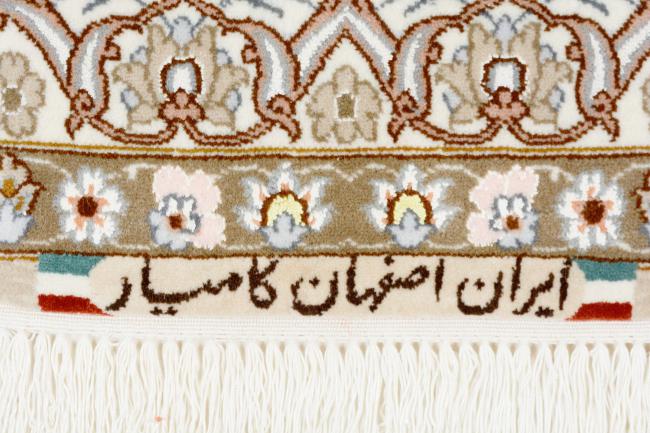 ایران اصفهان کامسیار